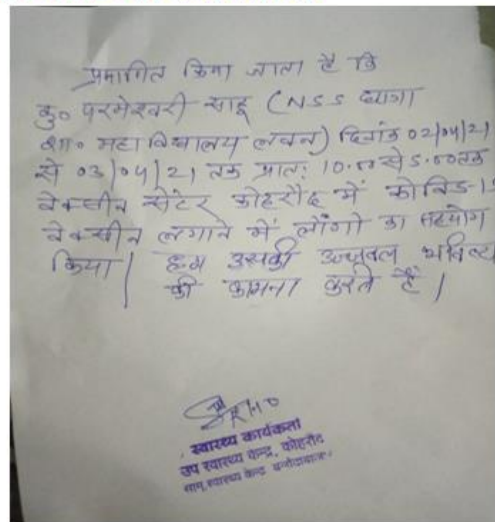 प्रमाणित किया जाता है कि
कु० परमेश्वरी साहू (NSS छात्रा
शा० महाविद्यालय लवन) दिनांक 02/04/21
से 03/04/21 तक प्रातः 10.00 से 5.00 तक
वेक्सीन सेंटर कोहरौद में कोविड-1
वेक्सीन लगाने में लोंगो का सहयोग
किया| हम उसकी उज्जवल भविष्य
की कामना करते हैं|
स्वास्थ्य कार्यकर्ता
उप स्वास्थ्य केन्द्र, कोहरौद
सामु. स्वास्थ्य केन्द्र